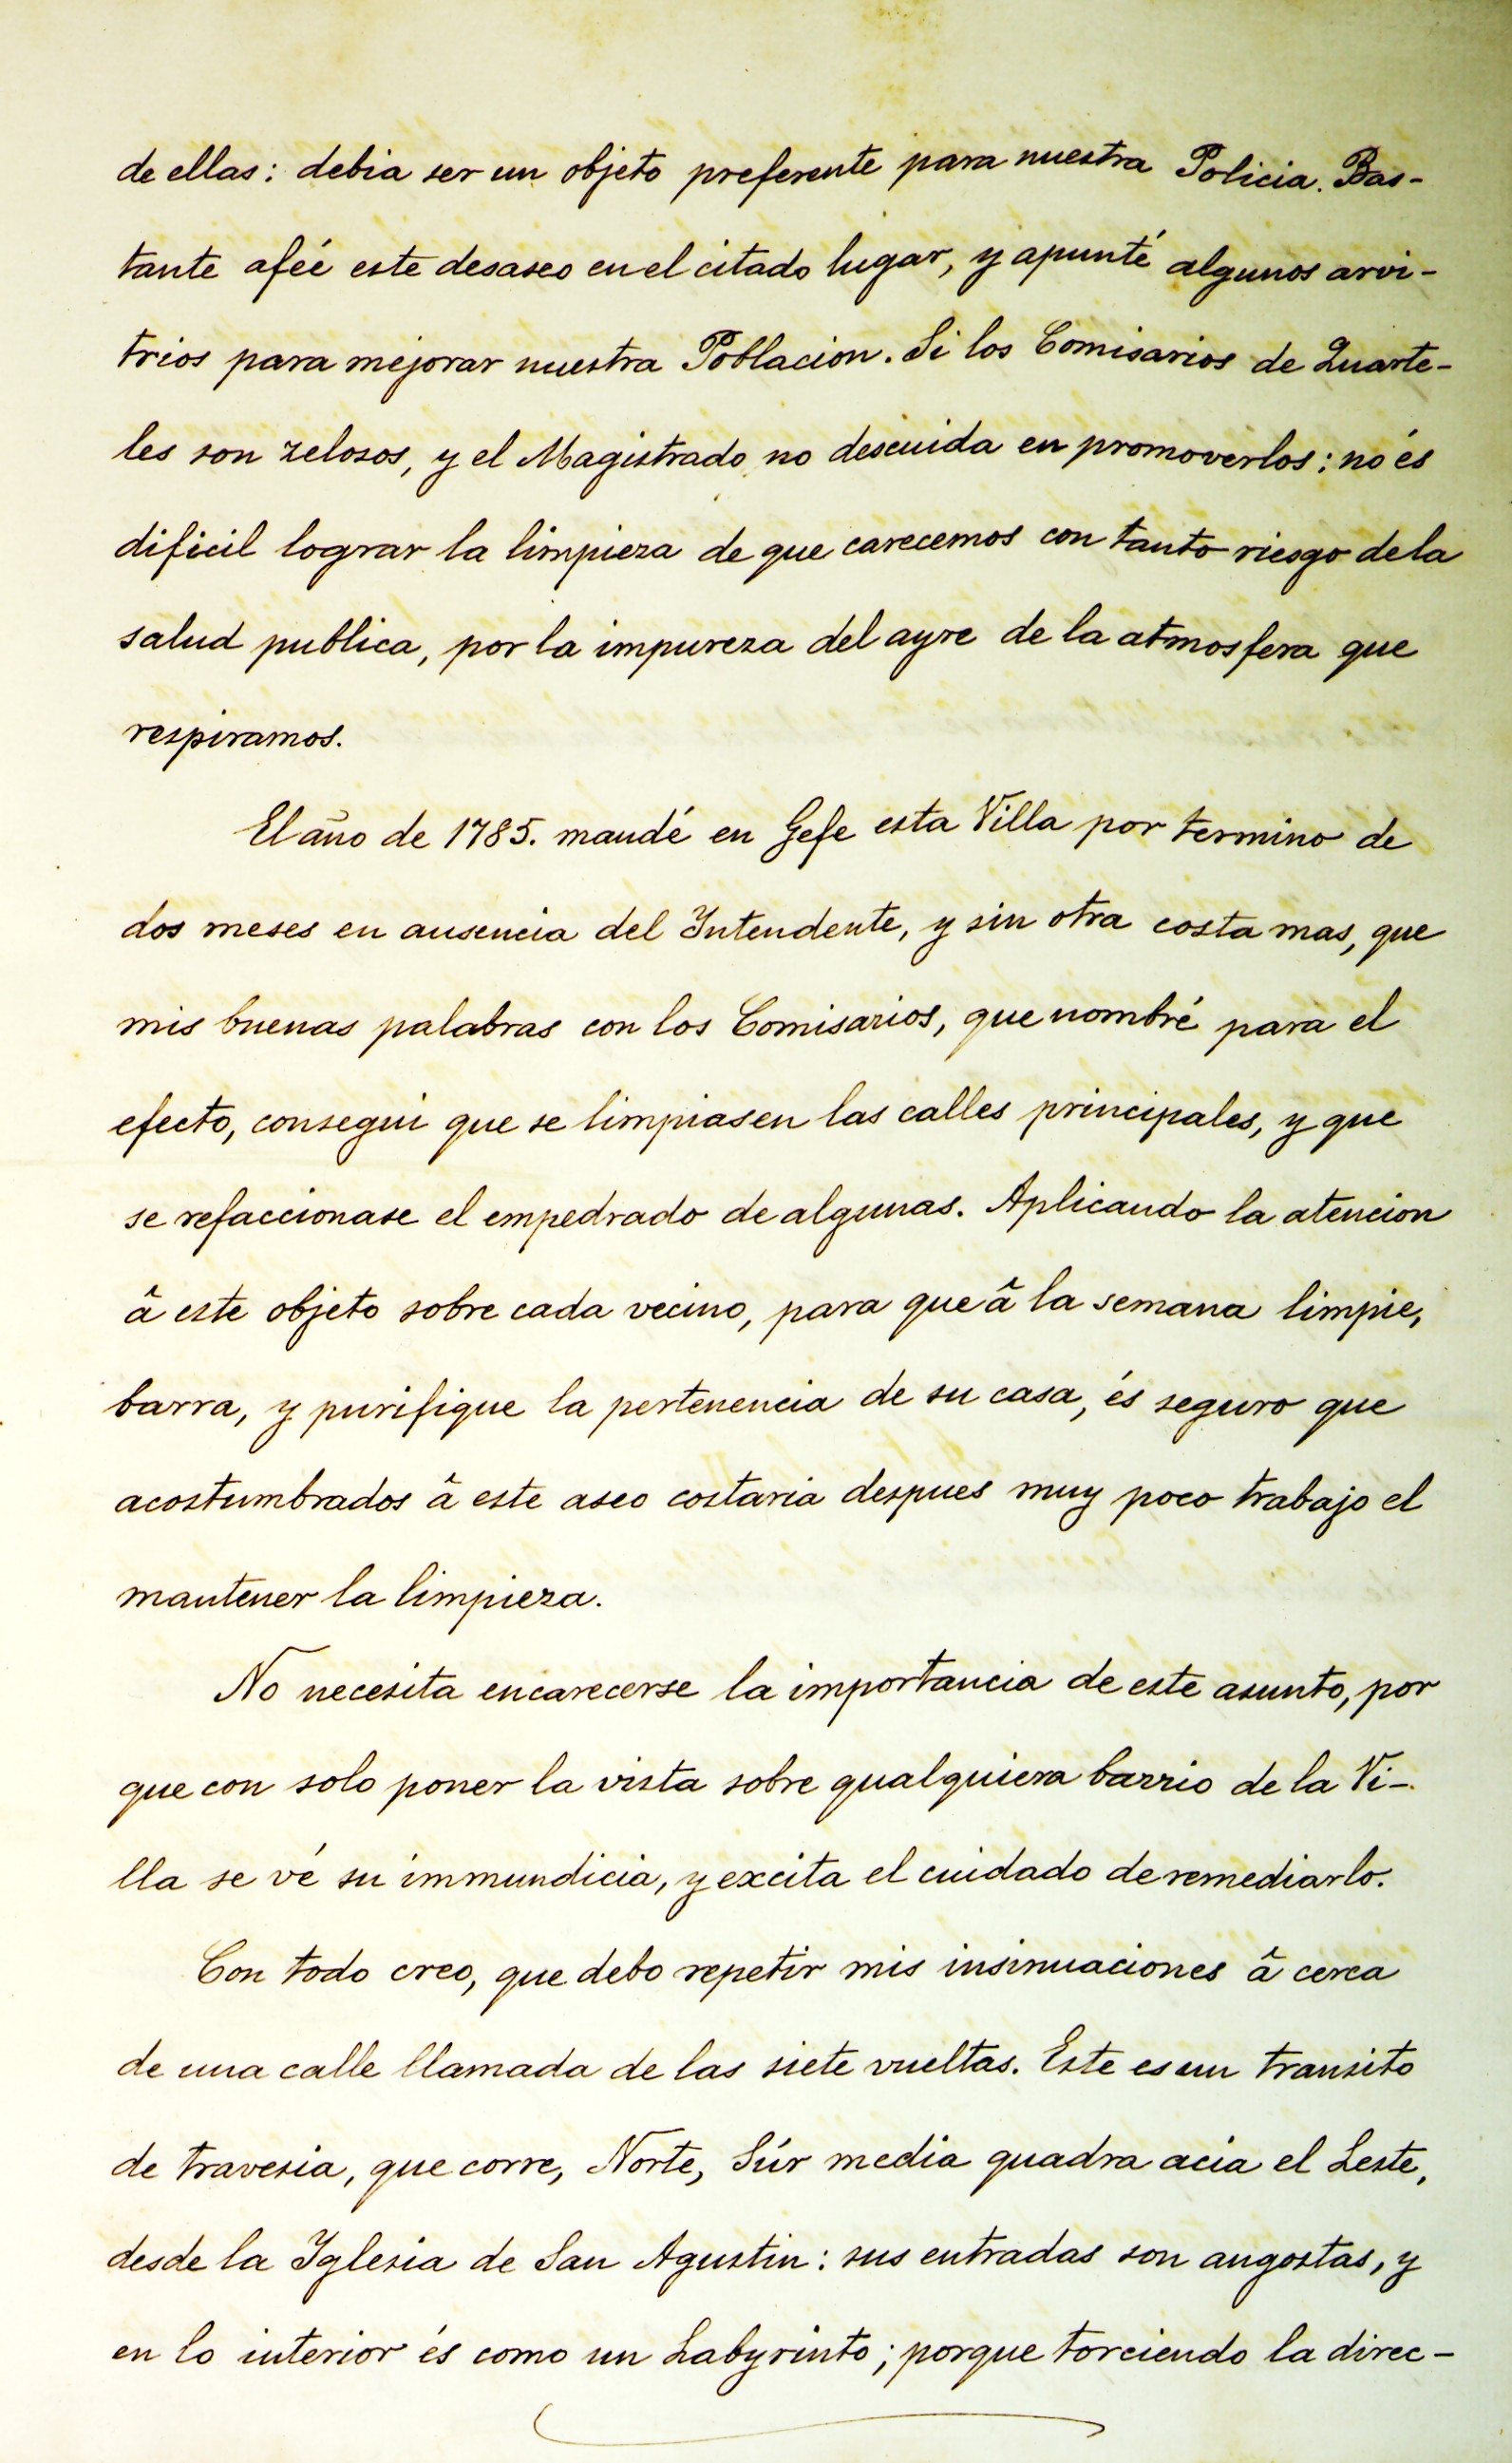 de ellas: debia ser un objeto preferente para nuestra Policia. Bas-
tante afeé este desaseo en el citado lugar, y apunté algunos arvi-
trios para mejorar nuestra Poblacion. Si los Comisarios de Quarte-
les son zelosos, y el Magistrado no descuida en promoverlos: no és
dificil lograr la limpieza de que carecemos con tanto riesgo de la
salud publica, por la impureza del ayre de la atmosfera que
respiramos.
El año de 1785. mandé en Gefe esta Villa por termino de
dos meses en ausencia del Intendente, y sin otra costa mas, que
mis buenas palabras con los Comisarios, que nombré para el
efecto, consegui que se limpiasen las calles principales, y que
se refaccionase el empedrado de algunas. Aplicando la atencion
â este objeto sobre cada vecino, para que â la semana limpie,
barra, y purifique la pertenencia de su casa, és seguro que
acostumbrados â este aseo costaria despues muy poco trabajo el
mantener la limpieza.
No necesita encarecerse la importancia de este asunto, por
que con solo poner la vista sobre qualquiera barrio de la Vi-
lla se vé su immundicia, y excita el cuidado de remediarlo.
Con todo creo, que debo repetir mis insinuaciones â cerca
de una calle llamada de las siete vueltas. Este es un transito
de travesia, que corre, Norte, Súr media quadra acia el Leste,
desde la Yglesia de San Agustin: sus entradas son angostas, y
en lo interior és como un Labyrinto; porque torciendo la direc-